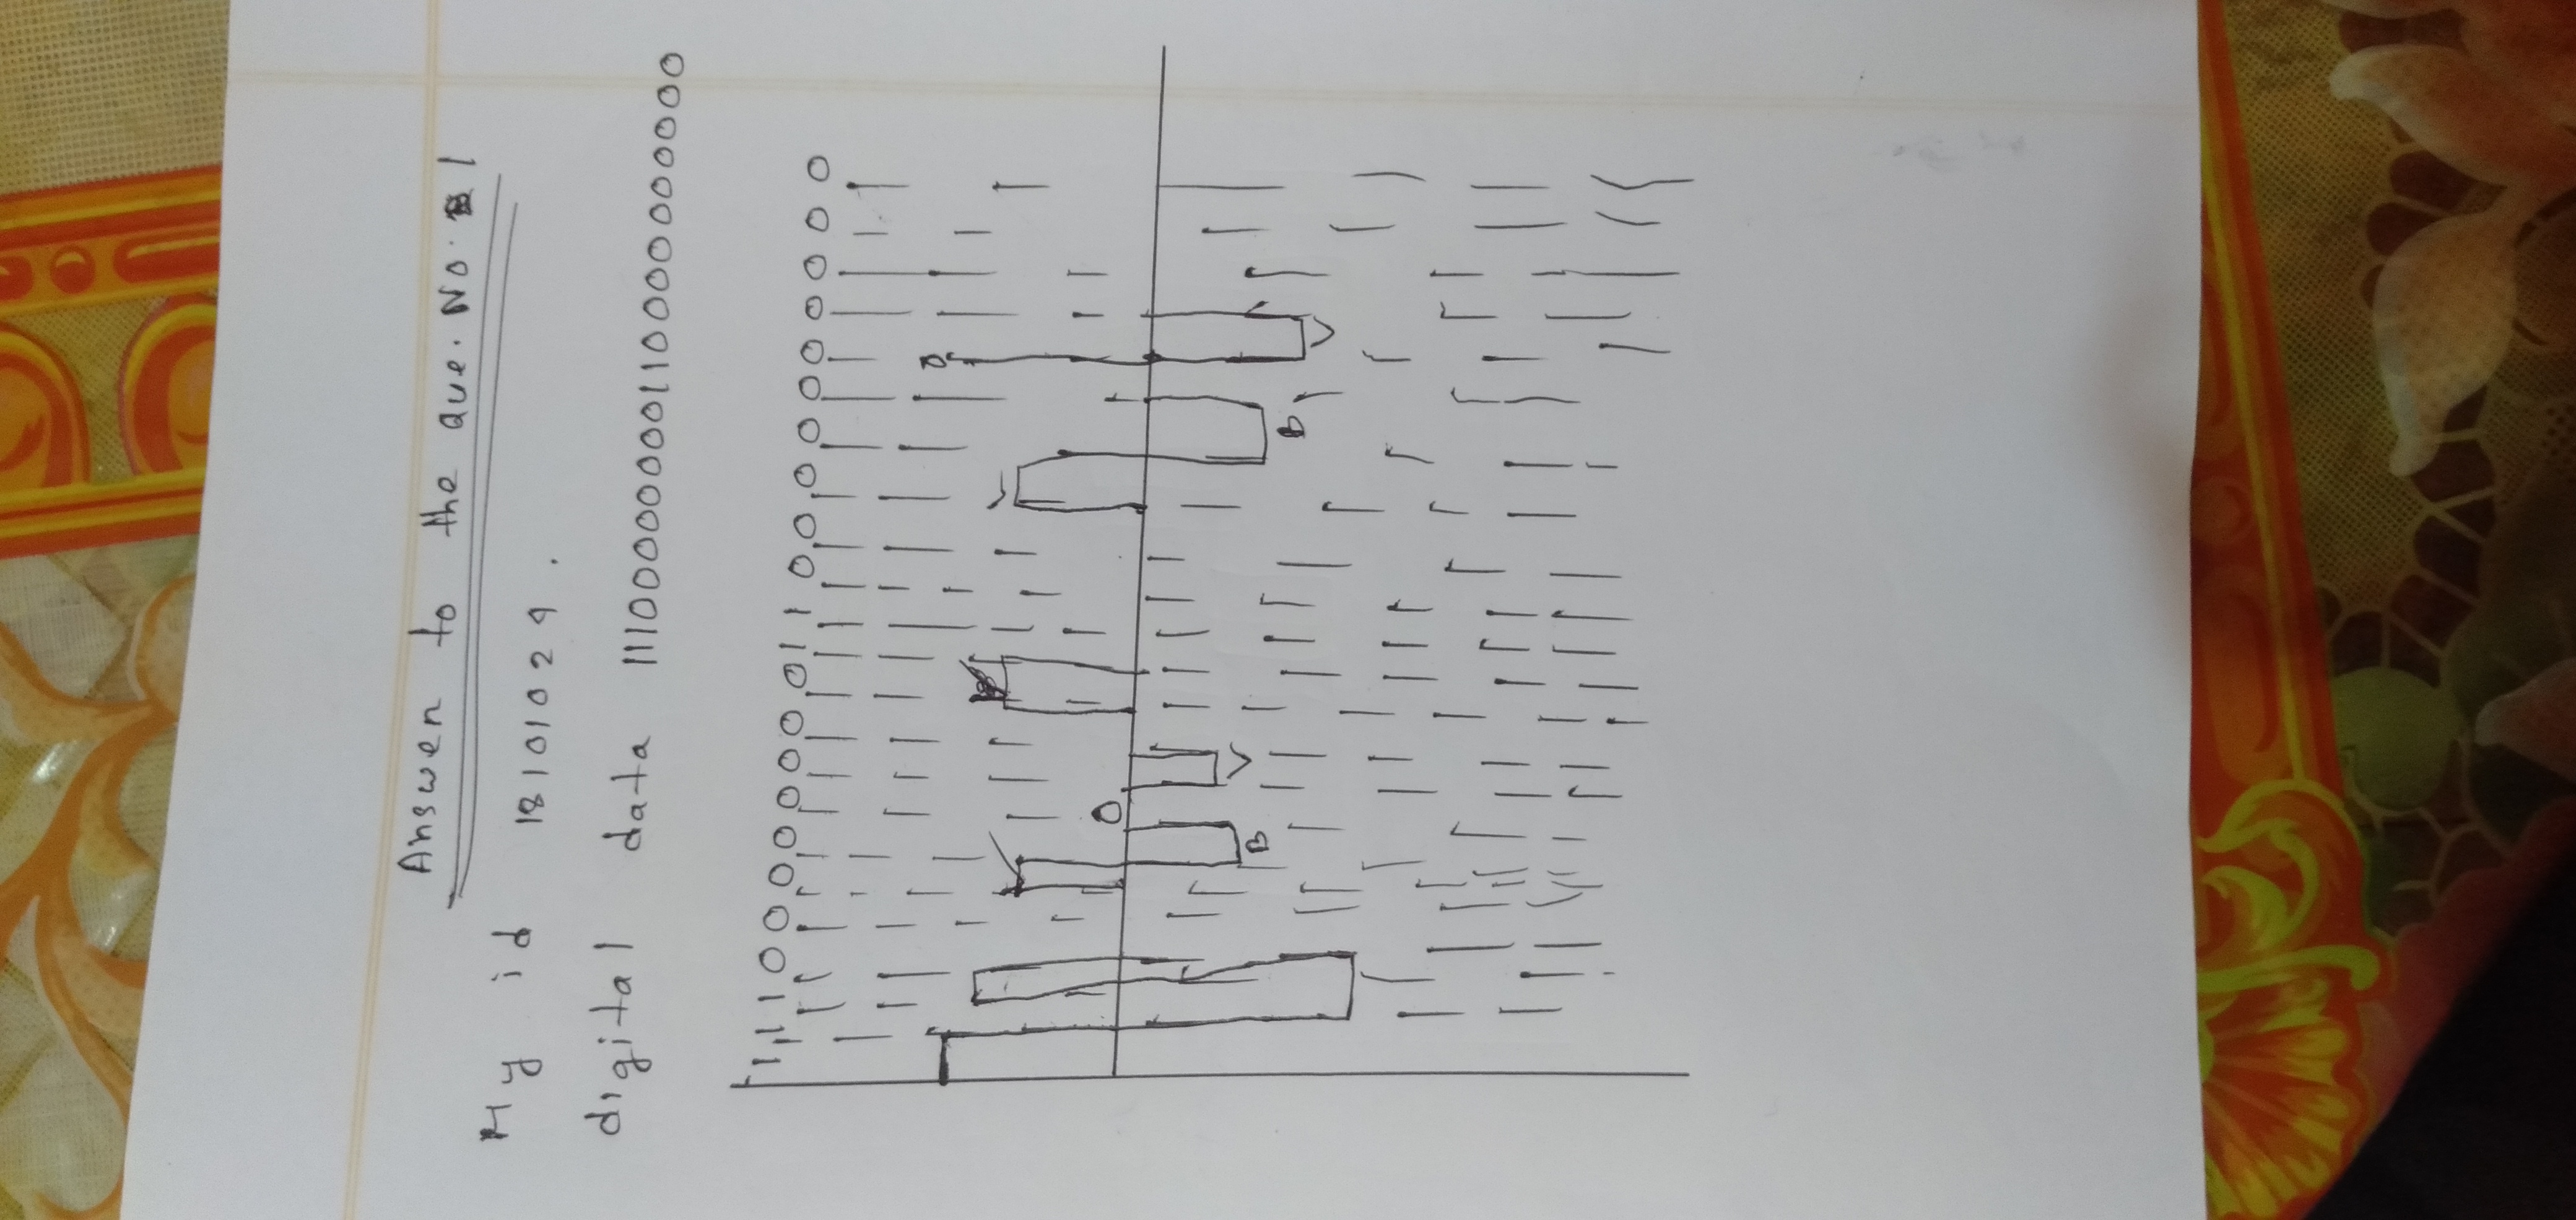 Answer to the que. No. 1
My id 18101029.
digital data 11100000000110000000000
11100000000110000000000
V
B
0
V
V
B
0
V